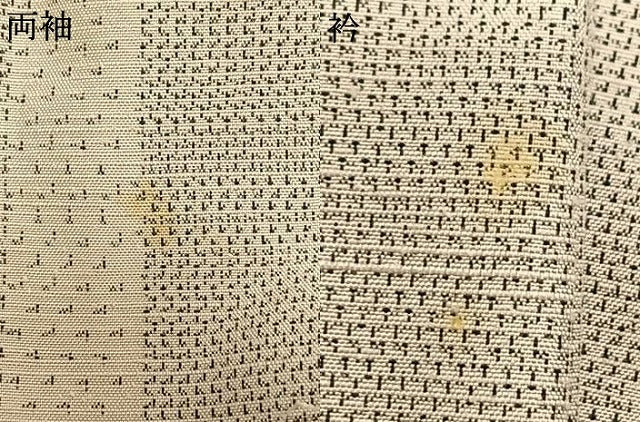 両袖
衿